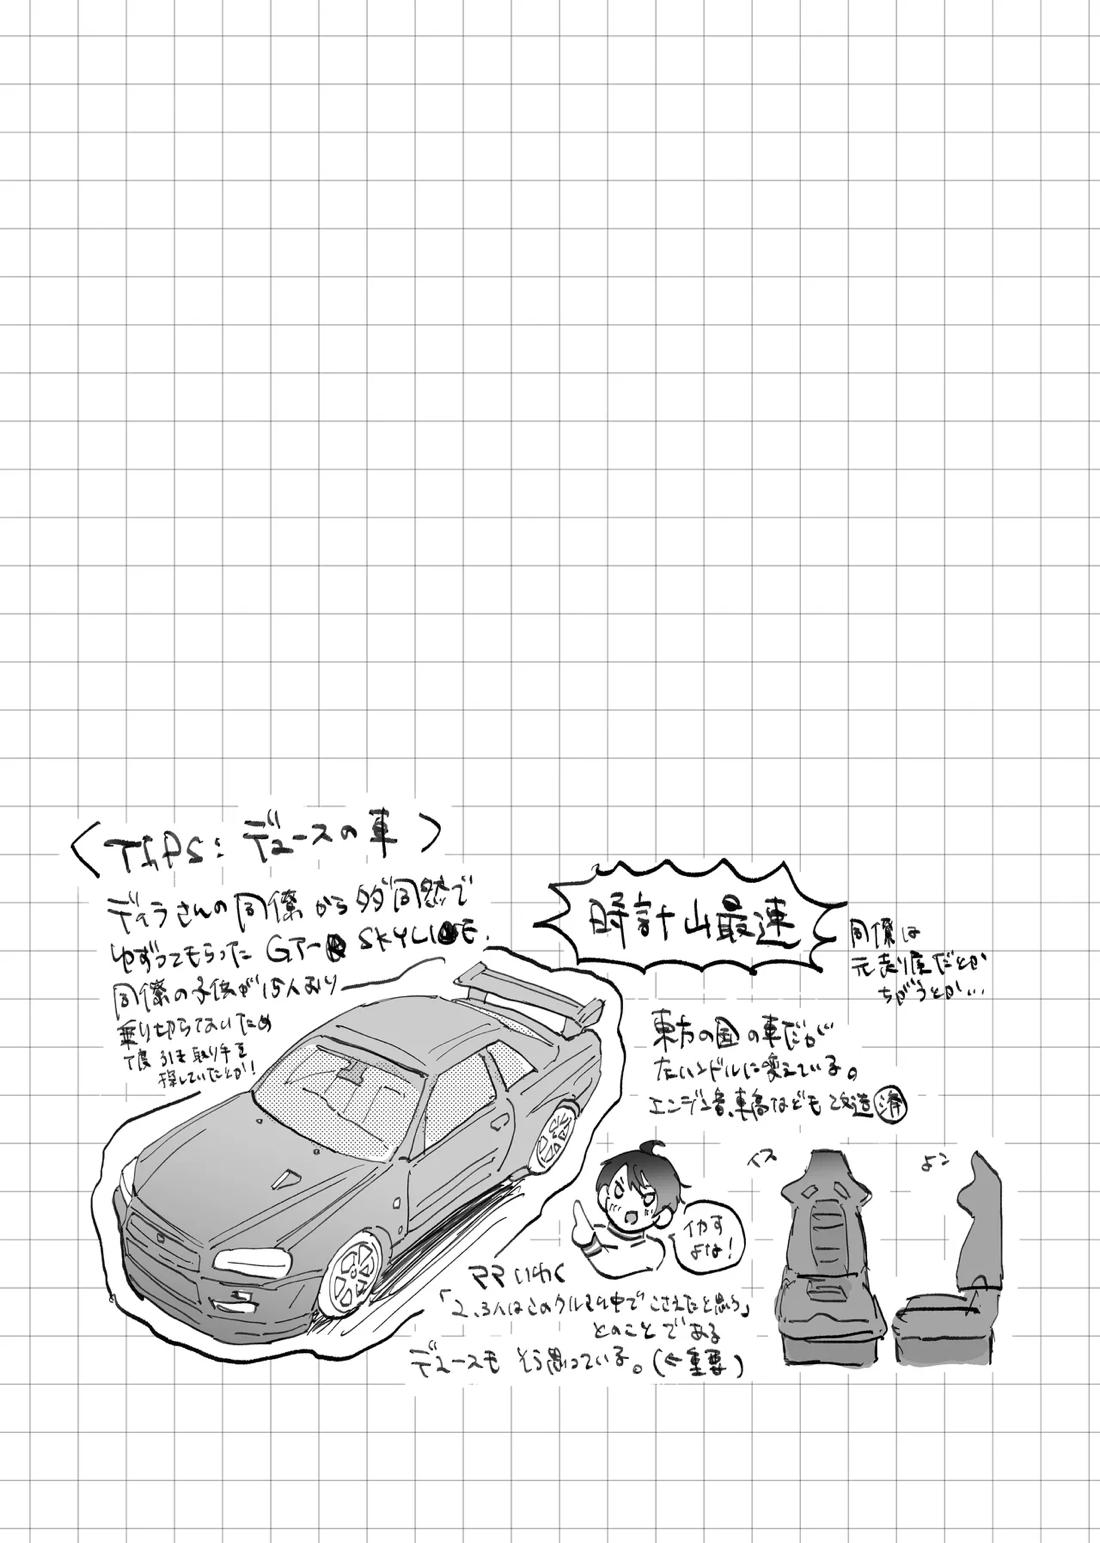 〈TIPS: デュースの車〉
ディラさんの同僚からタダ同然で
ゆずってもらったGT-R SKYLINE.
同僚の子供が15人おり
乗り切らないため
丁度引き取り手を
探していたとか!
時計山最速
同僚は
元走り屋だとか
ちがうとか...
東方の国の車だが
左ハンドルに変えている。
エンジン音、車高なども改造済
イス
よこ
よな!
ママいわく
「2、3人はこのクルマの中でこさえたと思う」
とのことである
デュースもそう思っている。(←重要)